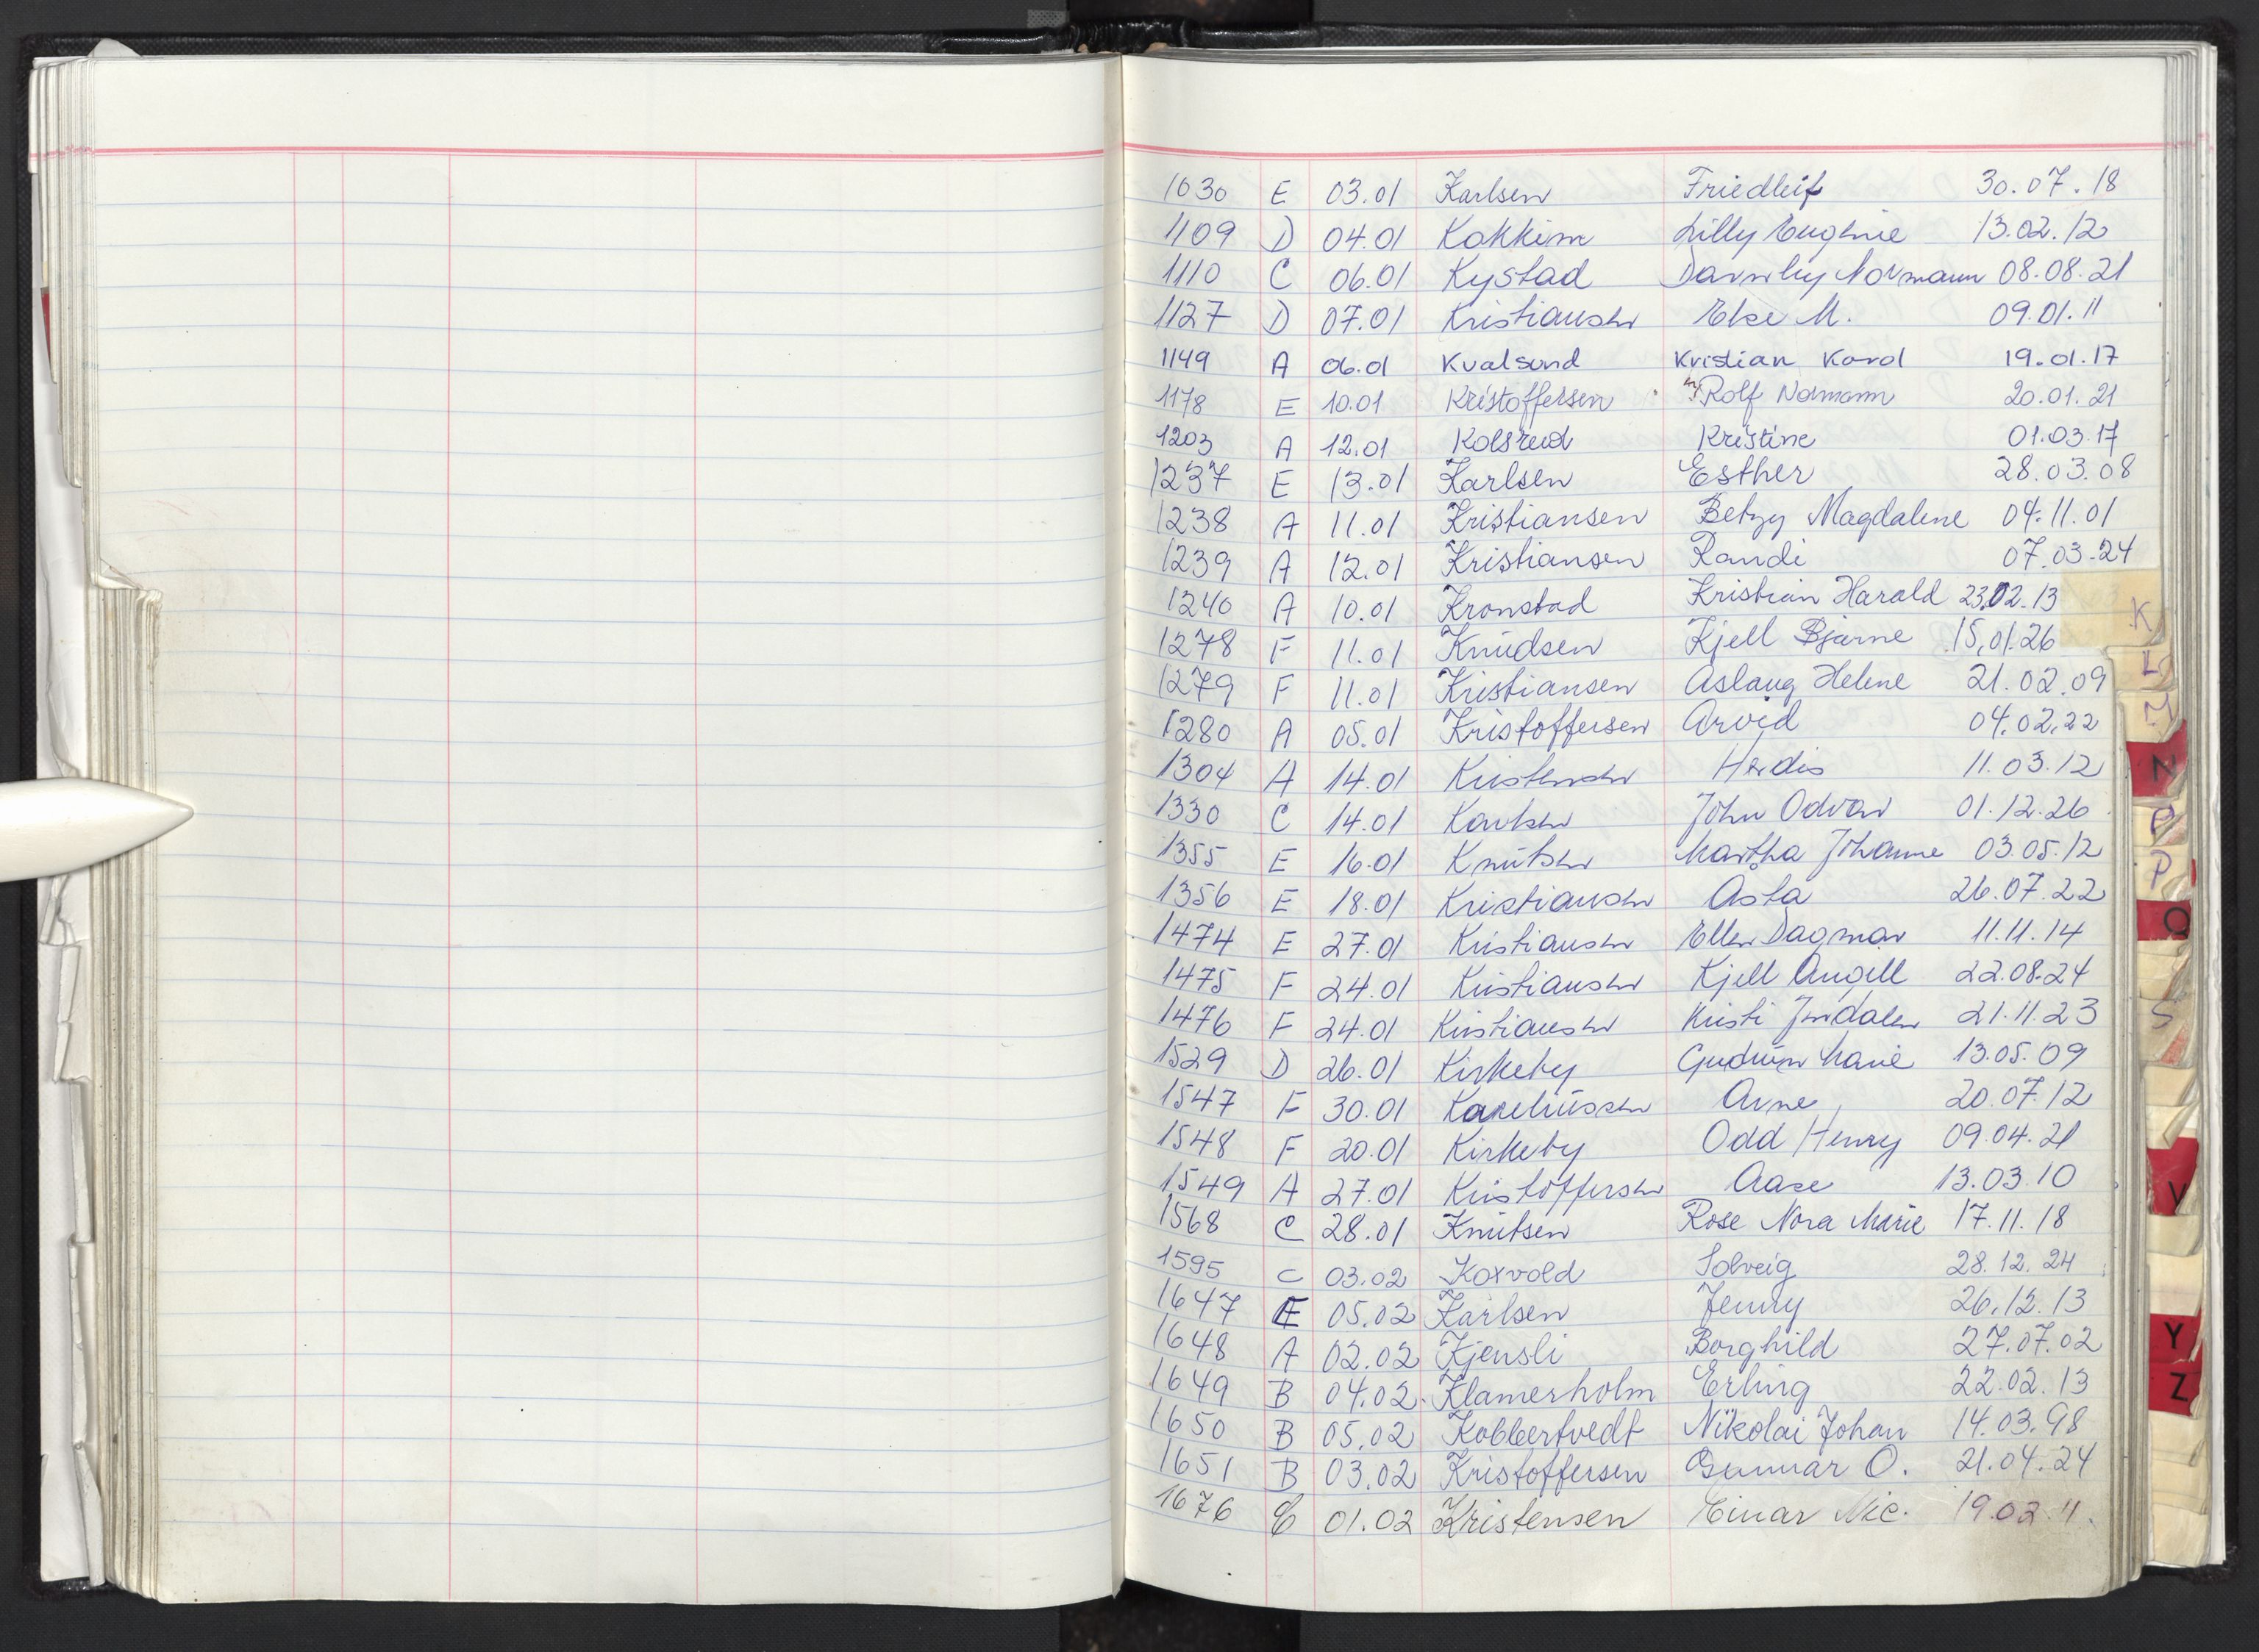 1030 E 03.01 Karlsen Friedleif 30.07.18
1109 D 04.01 Kokkim Lilly Eugenie 13.02.12
1110 C 06.01 Kystad Normann 08.08.21
1127 D 07.01 Kristiansen Else M. 09.01.11
1149 A 06.01 Kvalsund Kristian Kord 19.01.17
1178 E 10.01 Kristoffersen Rolf Normann 20.01.21
1203 A 12.01 Kolsrud Kristine 01.03.17
1237 E 13.01 Karlsen Esther 28.03.08
1238 A 11.01 Kristiansen Betzy Magdalene 04.11.01
1239 A 12.01 Kristiansen Randi 07.03.24
1240 A 10.01 Kronstad Kristian Harald 23.02.13
K
1278 F 11.01 Knudsen Kjell Bjarne 15.01.26
L
1279 F 11.01 Kristiansen Aslaug Helene 21.02.09
M
1280 A 05.01 Kristoffersen Arvid 04.02.22
N
1304 A 14.01 Kristensen Herdis 11.03.12
1330 C 14.01 Karlsen John Odvar 01.12.26
1355 E 16.01 Knutsen Martha Johanne 03.05.12
P
1356 E 18.01 Kristiansen Asta 26.07.22
Q
1474 E 27.01 Kristiansen Ellen Dagmar 11.11.14
1475 F 24.01 Kristiansen Kjell Angell 22.08.24
1476 F 24.01 Kristiansen Kristi Jendalen 21.11.23
S
1529 D 26.01 Kirkeby Gudrun Marie 13.05.09
1547 F 30.01 Kareliussen Arne 20.07.12
1548 F 20.01 Kirkeby Odd Henry 09.04.21
1549 A 27.01 Kristoffersen Aase 13.03.10
V
1568 C 28.01 Knutsen Rose Nora Marie 17.11.18
1595 C 03.02 Koxvold Solveig 28.12.24
1647 E 05.02 Karlsen Jenny 26.12.13
Y
1648 A 02.02 Kjensli Borghild 27.07.02
Z
1649 B 04.02 Klamerholm Erling 22.02.13
1650 B 05.02 Kobbertvedt Nikolai Johan 14.03.98
1651 B 03.02 Kristoffersen Gunnar O. 21.04.24
1676 C 01.02 Kristensen Einar Nic. 19.02.11.